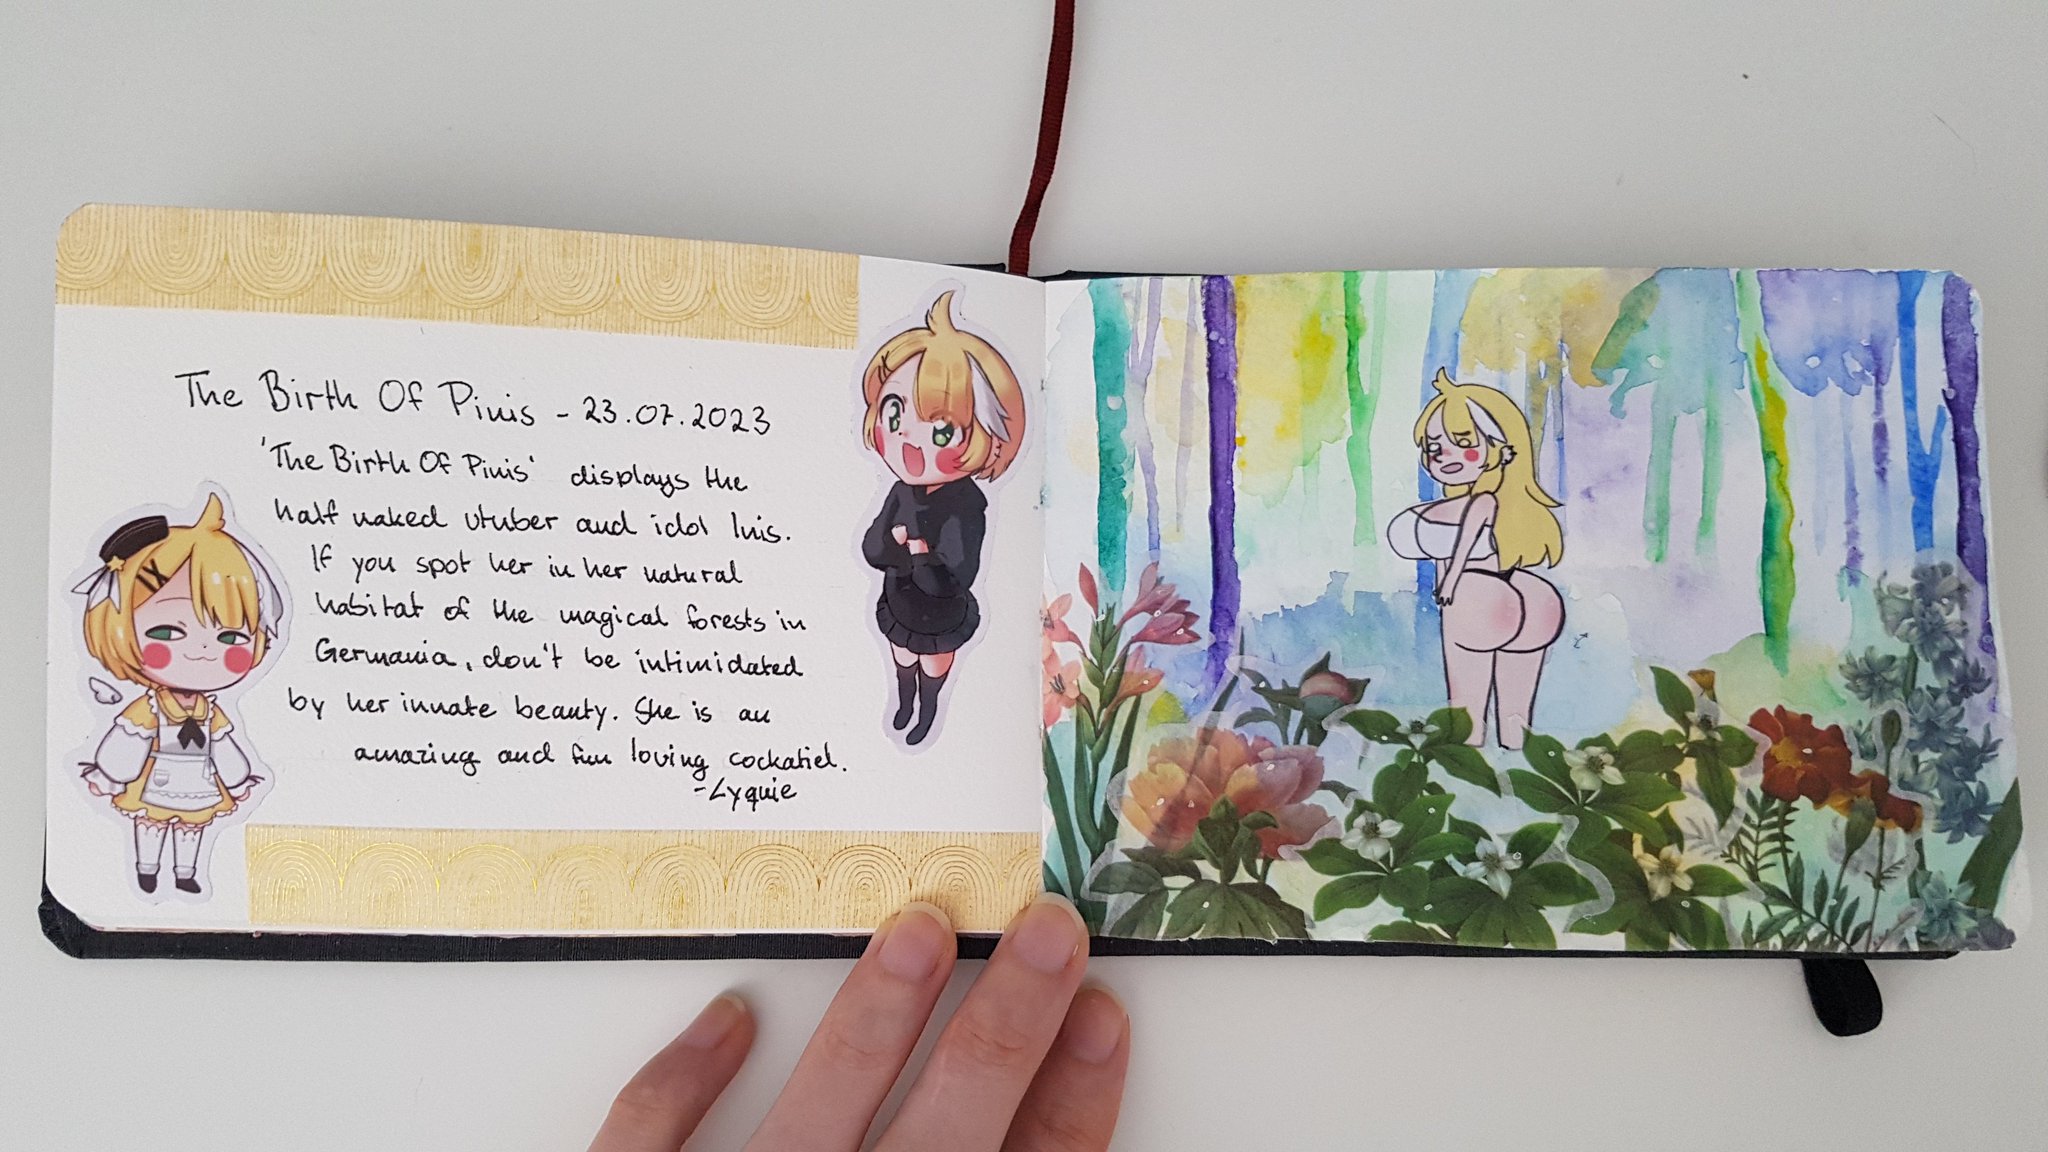 The Birth Of Pinis - 23.07.2023
'The Birth Of Pinis' displays the
half naked vtuber and idol Inis.
If you spot her in her natural
habitat of the magical forests in
Germania, don't be intimidated
by her innate beauty. She is an
amazing and fun loving cockatiel.
-Lyquie